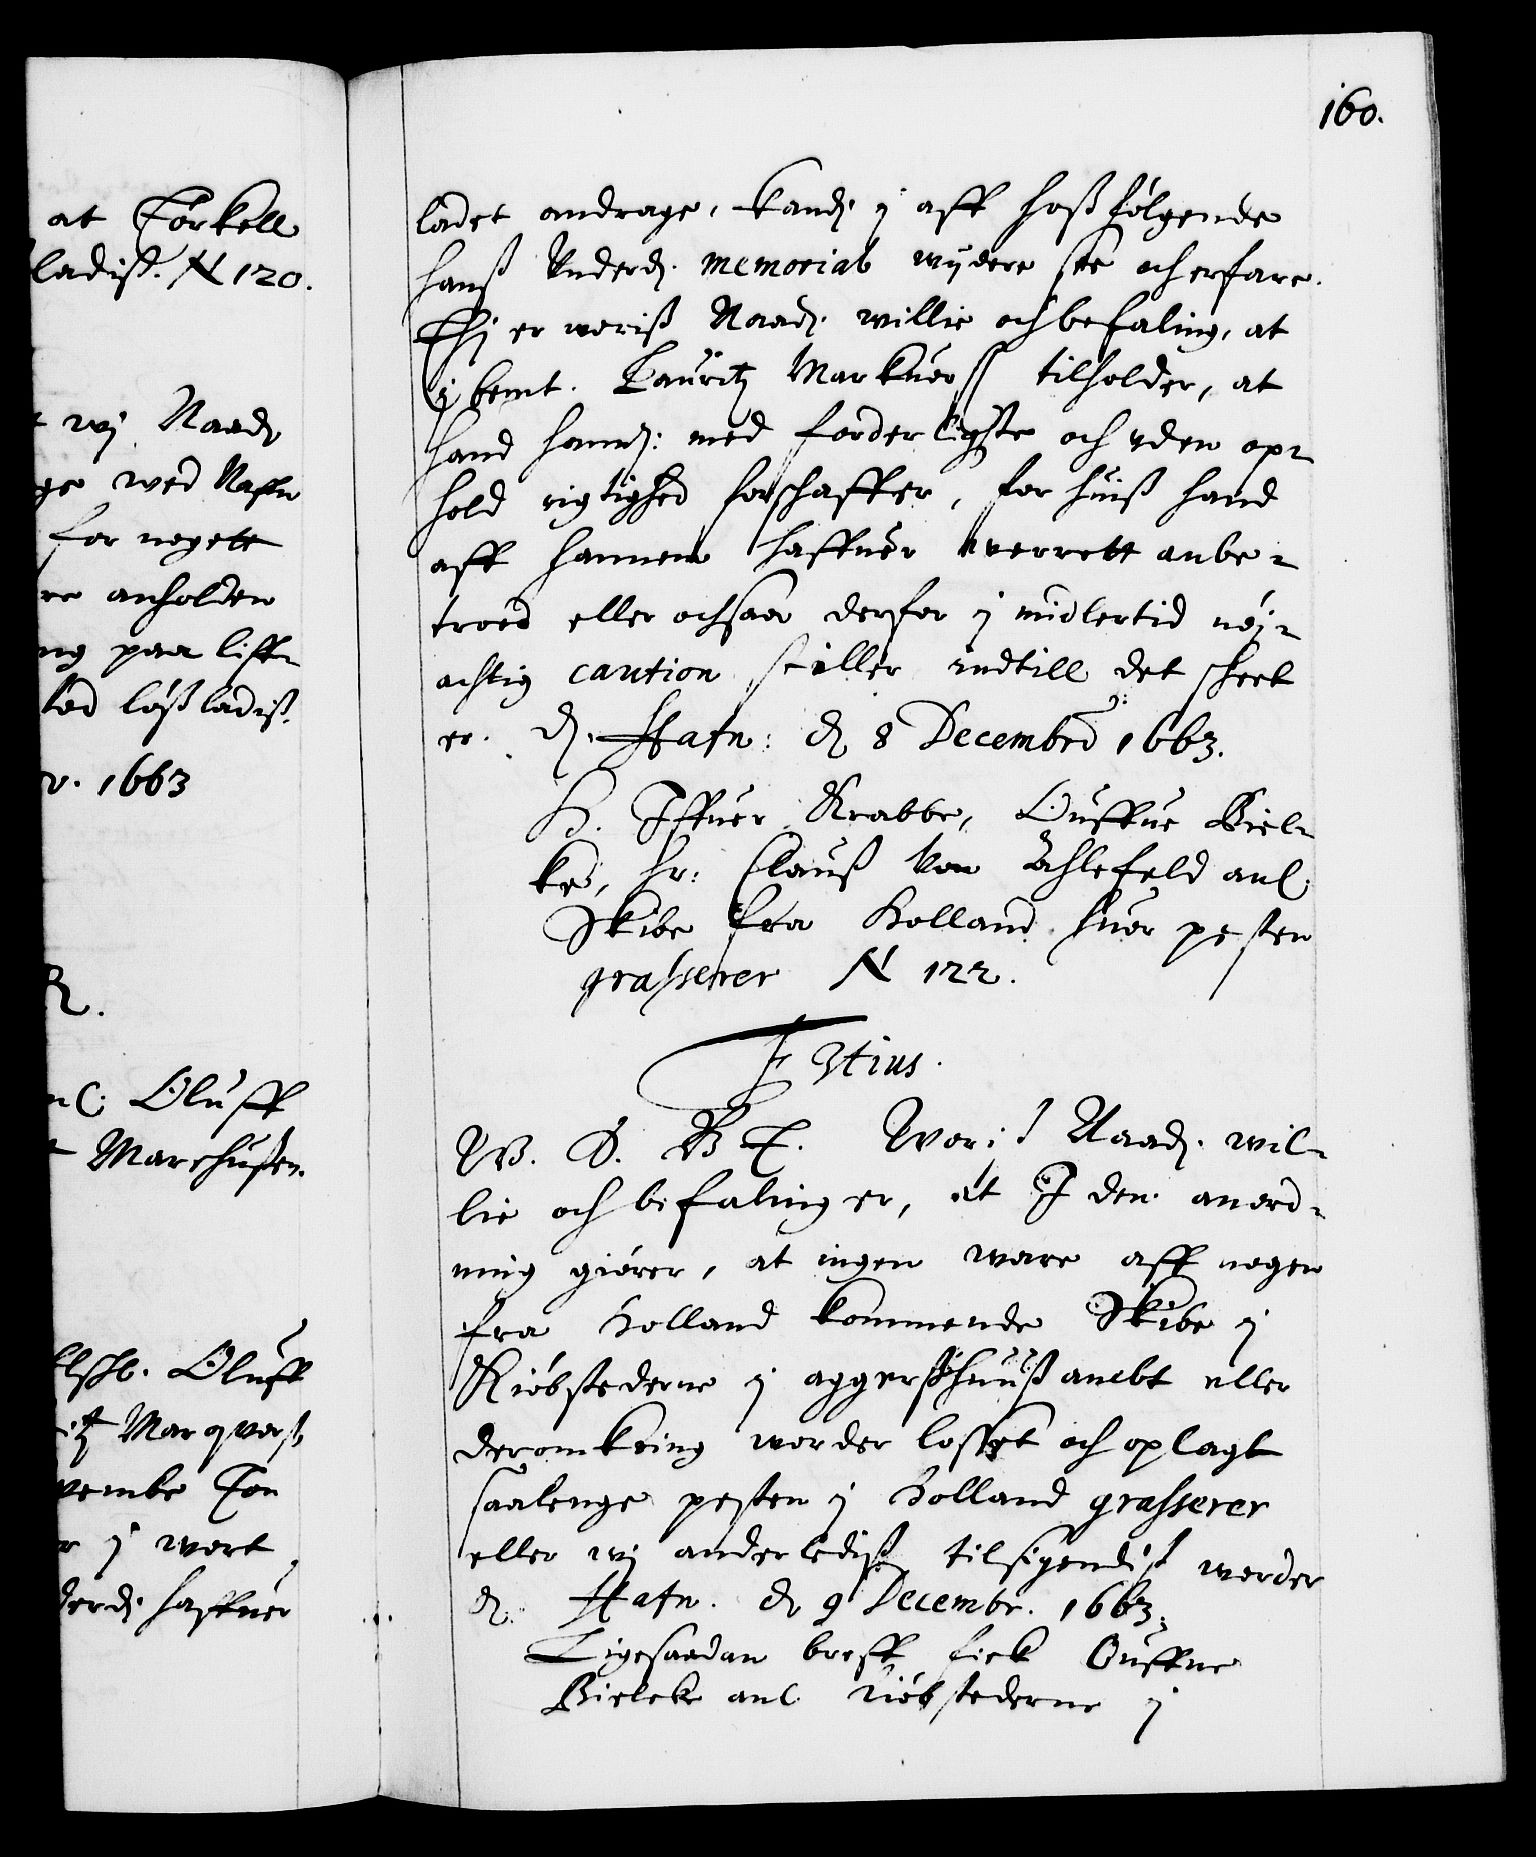 160.
at Torkell
ladiß. N 120.
wj Naadj
ge wed Nafn
for nogett
re anholden
ng paa liffz
ted løßladiß.
v. 1663
R.
nl: Oluff
t Marchußen.
Oluff
itz Marqvorß
vembr Ton
r j wort
derdj haffuer
ladet andrage, kandj j aff hoßfølgende
hanß Underdj. memorial wijdere see och erfare.
Thj er woriß Naadj. willie och befaling, at
j bemt. Lauritz Markuorß tilholder, at
hand hannem: med forderligste och uden op-
hold rigtighed forschaffer, for huiß hand
aff hannem haffuer werrett anbe-
troed eller ochsaa derfor j midlertid nøj-
achtig caution stiller indtill det skeet
er. dj. Hafn: dj 8 Decembr 1663.
H. Iffuer Krabbe, Ouffue Biel-
ke, hr: Clauß Von Ahlefeld anl.
Skibe fra Holland huor pesten
grasserer N 122.
F 3tius.
W. S. B T. Woriß Naadj. wil-
lie och befaling er, at I den anord-
ning giører, at ingen ware aff nogen
fra Holland kommende Skibe j
Kiøbstederne j aggerßhuuß ambt eller
deromkring worder losset och oplagt
saalenge pesten j Holland grasserer
eller wj anderlediß tilsigendiß worder
dj. Hafn. dj 9 Decembr. 1663.
Ligesaadan breff fick Ouffue
Bielcke anl. Kiøbstederne j